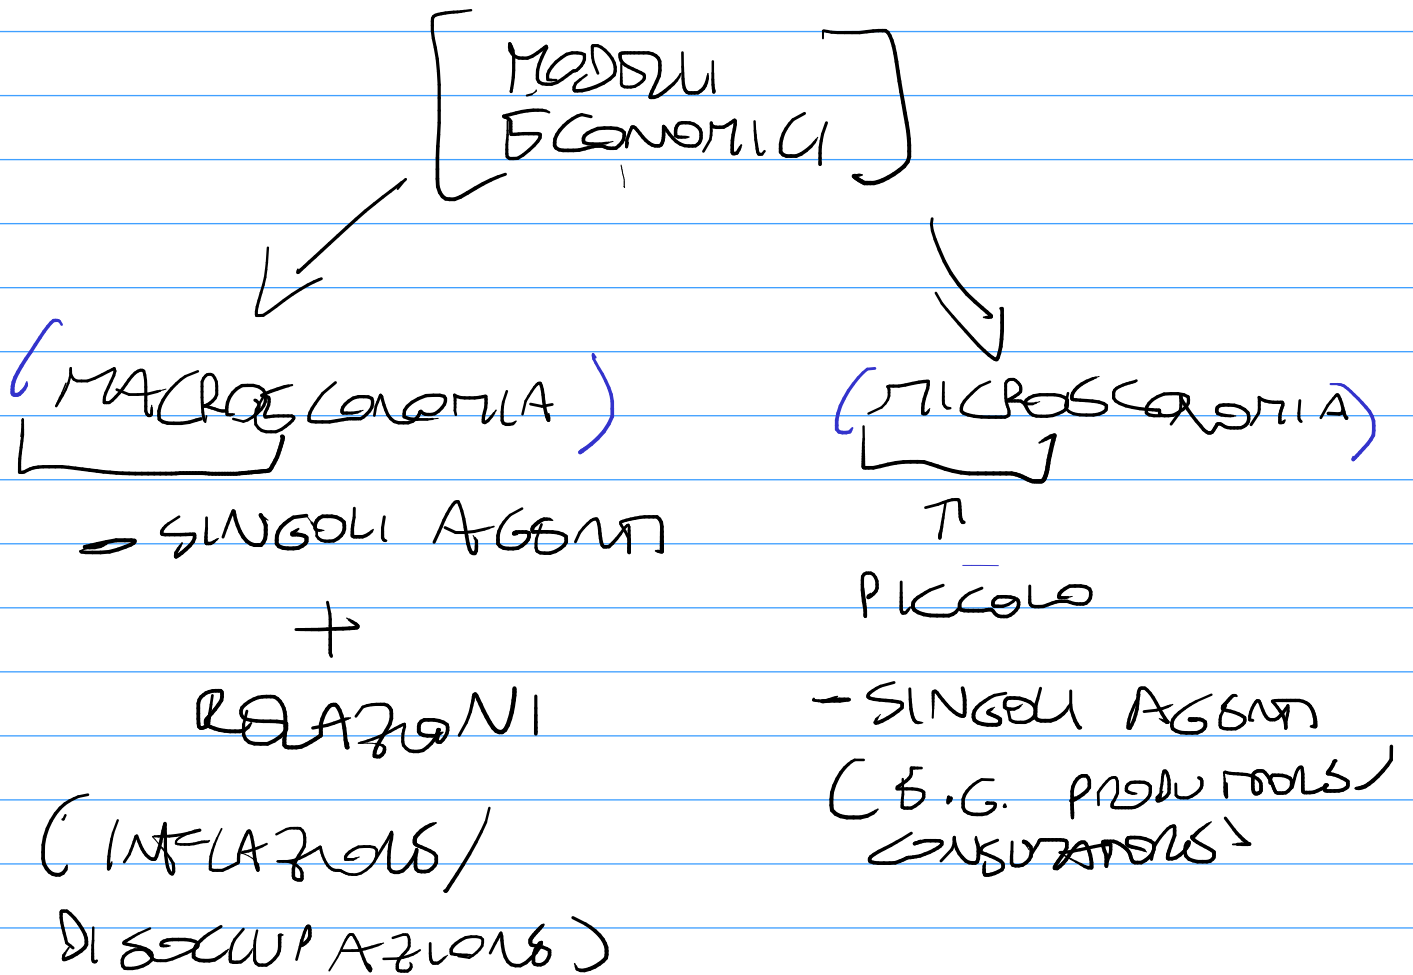 MODELLI
ECONOMICI
(MACROECONOMIA)
(MICROECONOMIA)
- SINGOLI AGENTI
+
RELAZIONI
(INFLAZIONE/
DISOCCUPAZIONE)
↑
PICCOLO
- SINGOLI AGENTI
(E.G. PRODUTTORE/
CONSUMATORE)